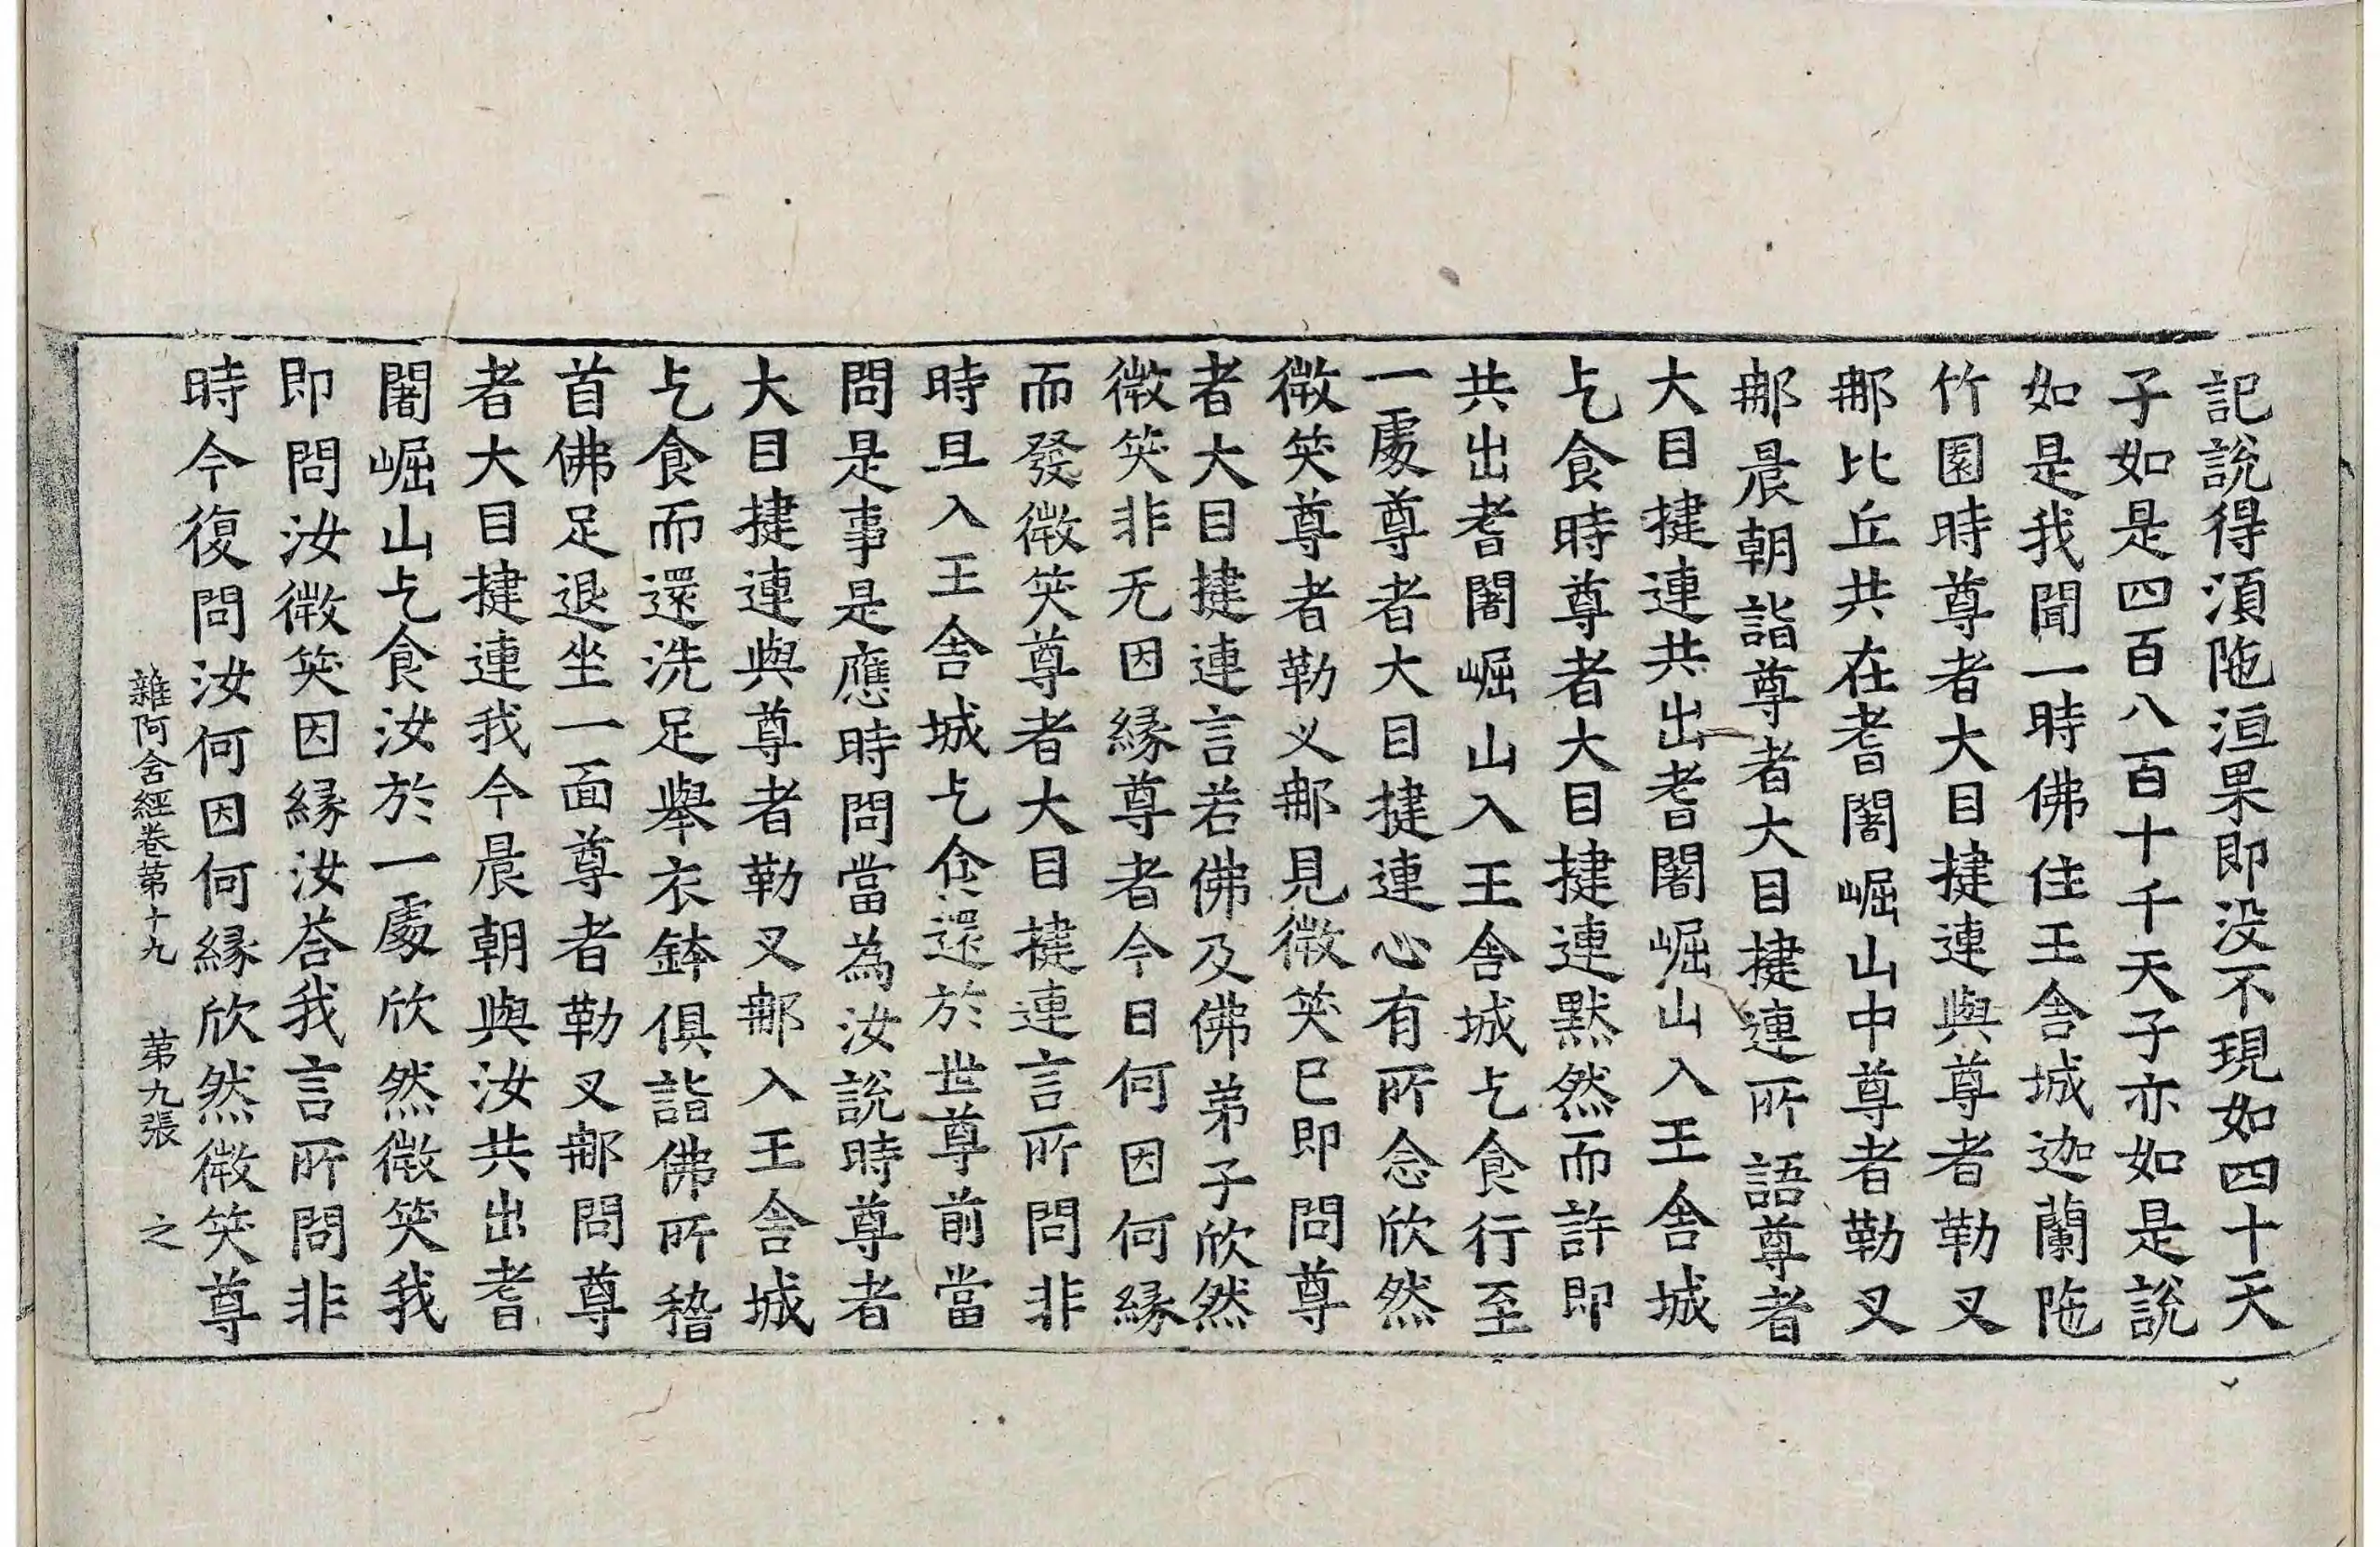 記說得湏陁洹果即没不現如四十天
子如是四百八百十千天子亦如是說
如是我聞一時佛住王舍城迦蘭陁
竹園時尊者大目揵連與尊者勒叉
郍比丘共在耆闍崛山中尊者勒叉
郍晨朝詣尊者大目揵連所語尊者
大目揵連共出耆闍崛山入王舍城
乞食時尊者大目揵連默然而許即
共出耆闍崛山入王舍城乞食行至
一處尊者大目揵連心有所念欣然
微笑尊者勒义郍見微笑已即問尊
者大目揵連言若佛及佛弟子欣然
微笑非无因縁尊者今日何因何縁
而發微笑尊者大目揵連言所問非
時且入王舍城乞食還於世尊前當
問是事是應時問當為汝說時尊者
大目揵連與尊者勒叉郍入王舍城
乞食而還洗足舉衣鉢俱詣佛所稽
首佛足退坐一面尊者勒叉郍問尊
者大目揵連我今晨朝與汝共出耆
闍崛山乞食汝於一處欣然微笑我
即問汝微笑因縁汝荅我言所問非
時今復問汝何因何縁欣然微笑尊
雜阿含經卷第十九 第九張 之